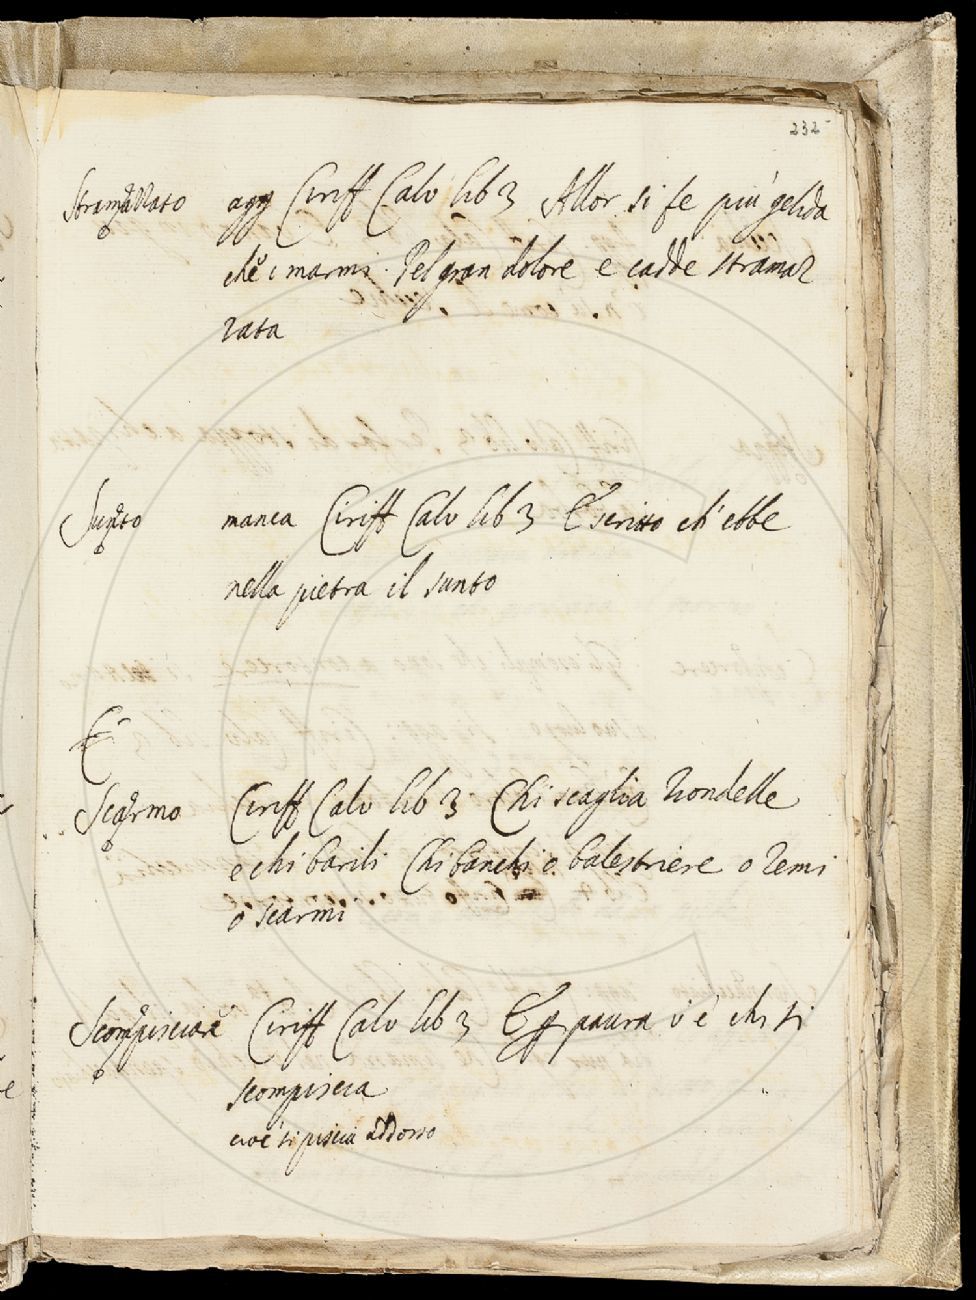 232
Stramazzato agg Ciriff Calv lib 3 Allor si fe più gelida
che i marmi. Pel gran dolore e cadde stramaz
zata
Sunto manca Ciriff Calv lib 3 E scritto ch' ebbe
nella pietra il sunto
Scarmo Ciriff Calv lib 3 Chi scaglia Rondelle
e chi barili Chi banchi o balestriere o remi
o scarmi
Scompisciare Ciriff Calv lib 3 E p paura v'è chi si
scompiscia
cioè si piscia addosso